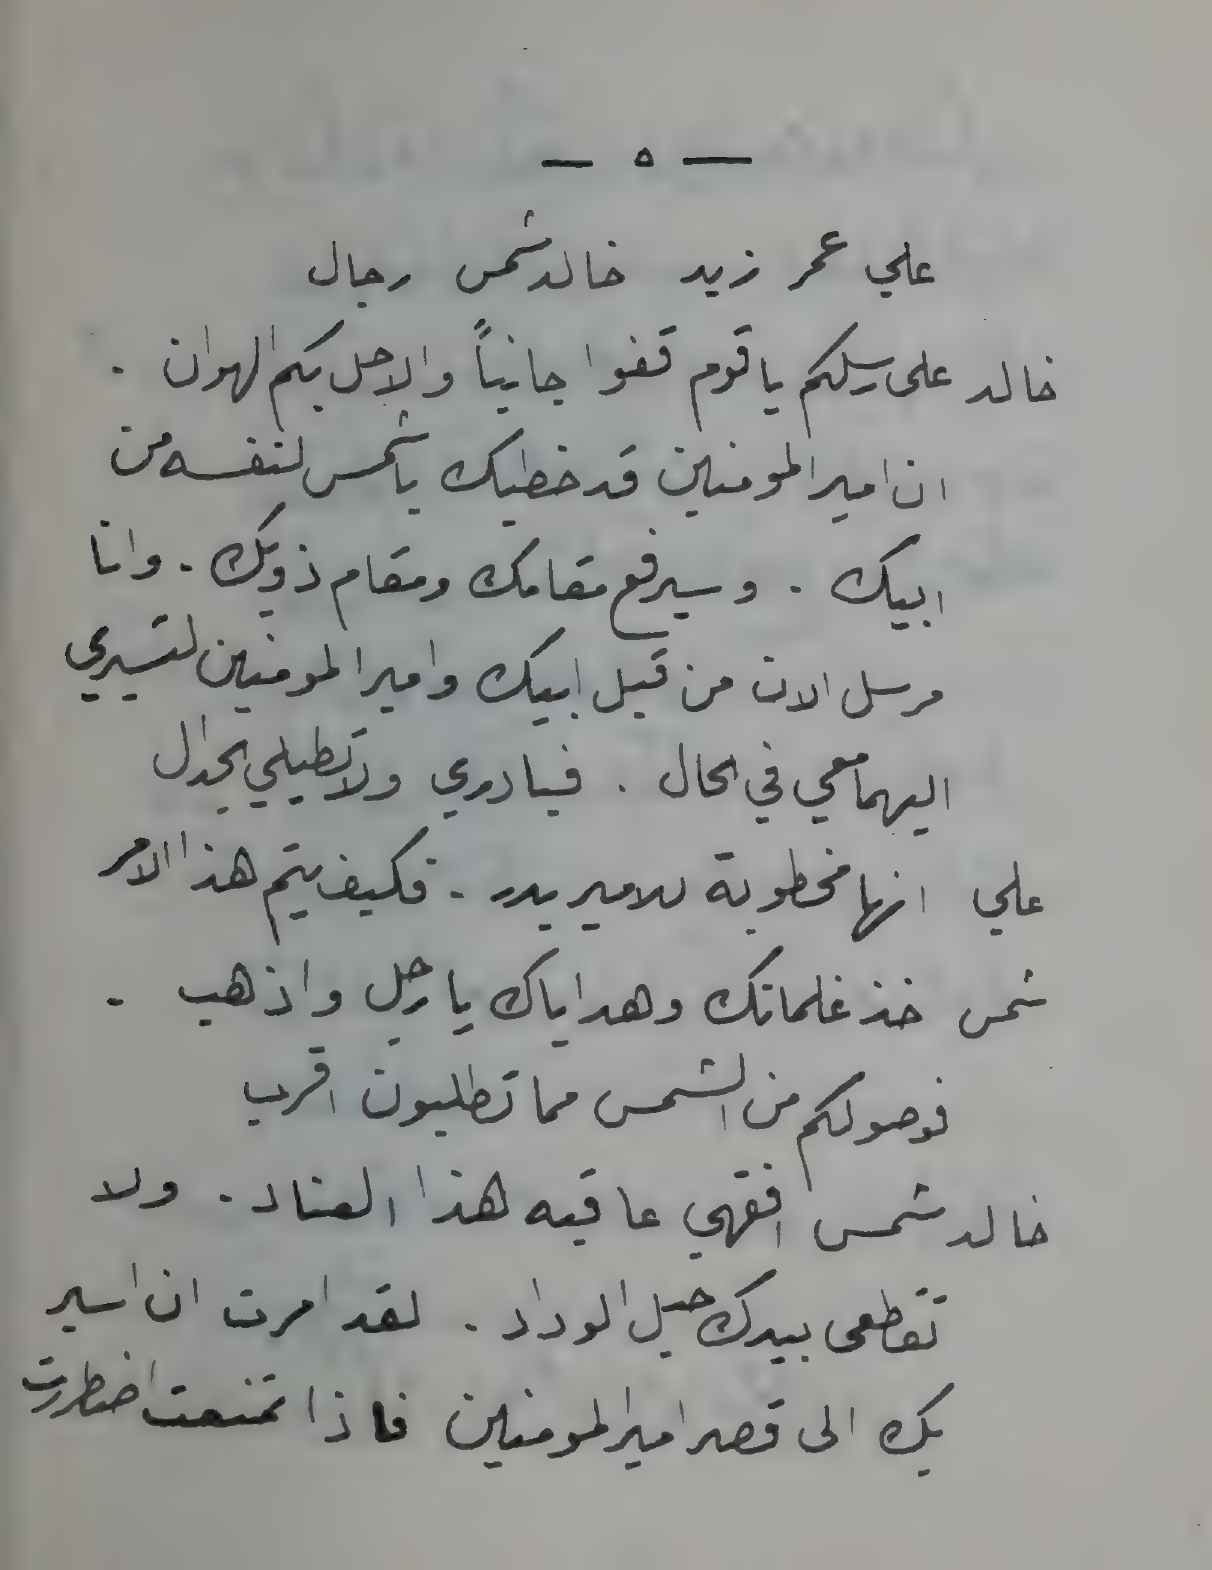 — ٥ —
علي عمر زيد خالد شمس رجال
خالد على رسلكم يا قوم قفوا جانباً والا حل بكم الهوان .
ان امير المومنين قد خطبك يا شمس لنفسه من
ابيك . وسيرفع مقامك ومقام ذويك . وانا
مرسل الان من قبل ابيك وامير المومنين لتسيري
اليهما معي في الحال . فبادري ولا تطيلي الجدال
علي انها مخطوبة للامير بدر . فكيف يتم هذا الامر
شمس خذ غلمانك وهداياك يا رجل واذهب .
فوصولكم من الشمس مما تطلبون اقرب
خالد شمس افقهي عاقبه هذا العناد . ولا
تقطعى بيدك حبل الوداد . لقد امرت ان اسير
بك الى قصر امير المومنين فاذا تمنعت اضطررت